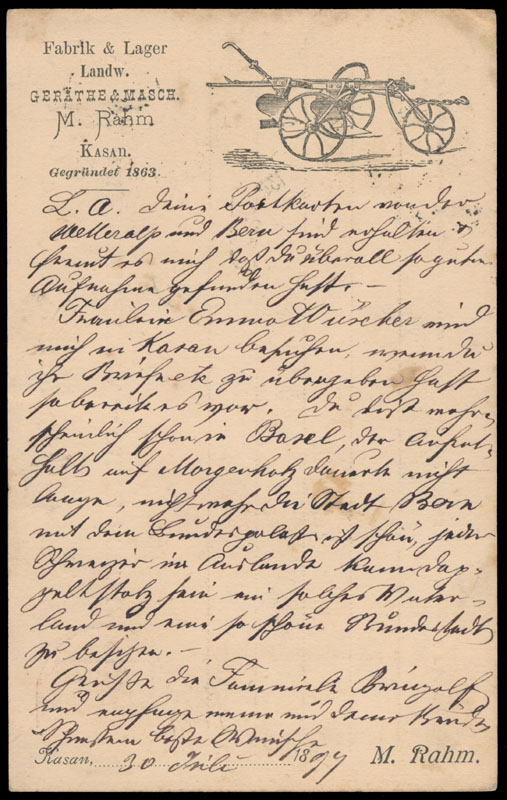 Fabrik & Lager
Landw.
GERÄTHE & MASCH.
M. Rahm
KASAN.
Gegründet 1863.
L. A. Deine Postkarten von der
und Bern sind erhalten &
freut es mich daß du überall so guten
Aufnahme gefunden hast. –
Fräulein Emma Wüscher wird
mich in Kasan besuchen, wenn du
ihr Briefe etc zu übergeben hast
so bereite es vor. Du bist wahr-
scheinlich schon in Basel, der Aufent-
halt auf Morgenholz dauerte nicht
lange, nicht wahr die Stadt Bern
mit dem Bundespalast ist schön, jeder
Schweizer im Auslande kann dop-
pelt stolz sein ein solches Vater-
land und eine so schöne Bundesstadt
zu besitzen. –
Grüße die Familie Bringolf
und empfange meine und deiner
beste Wünsche
Kasan, 30 Juli 1897 M. Rahm.